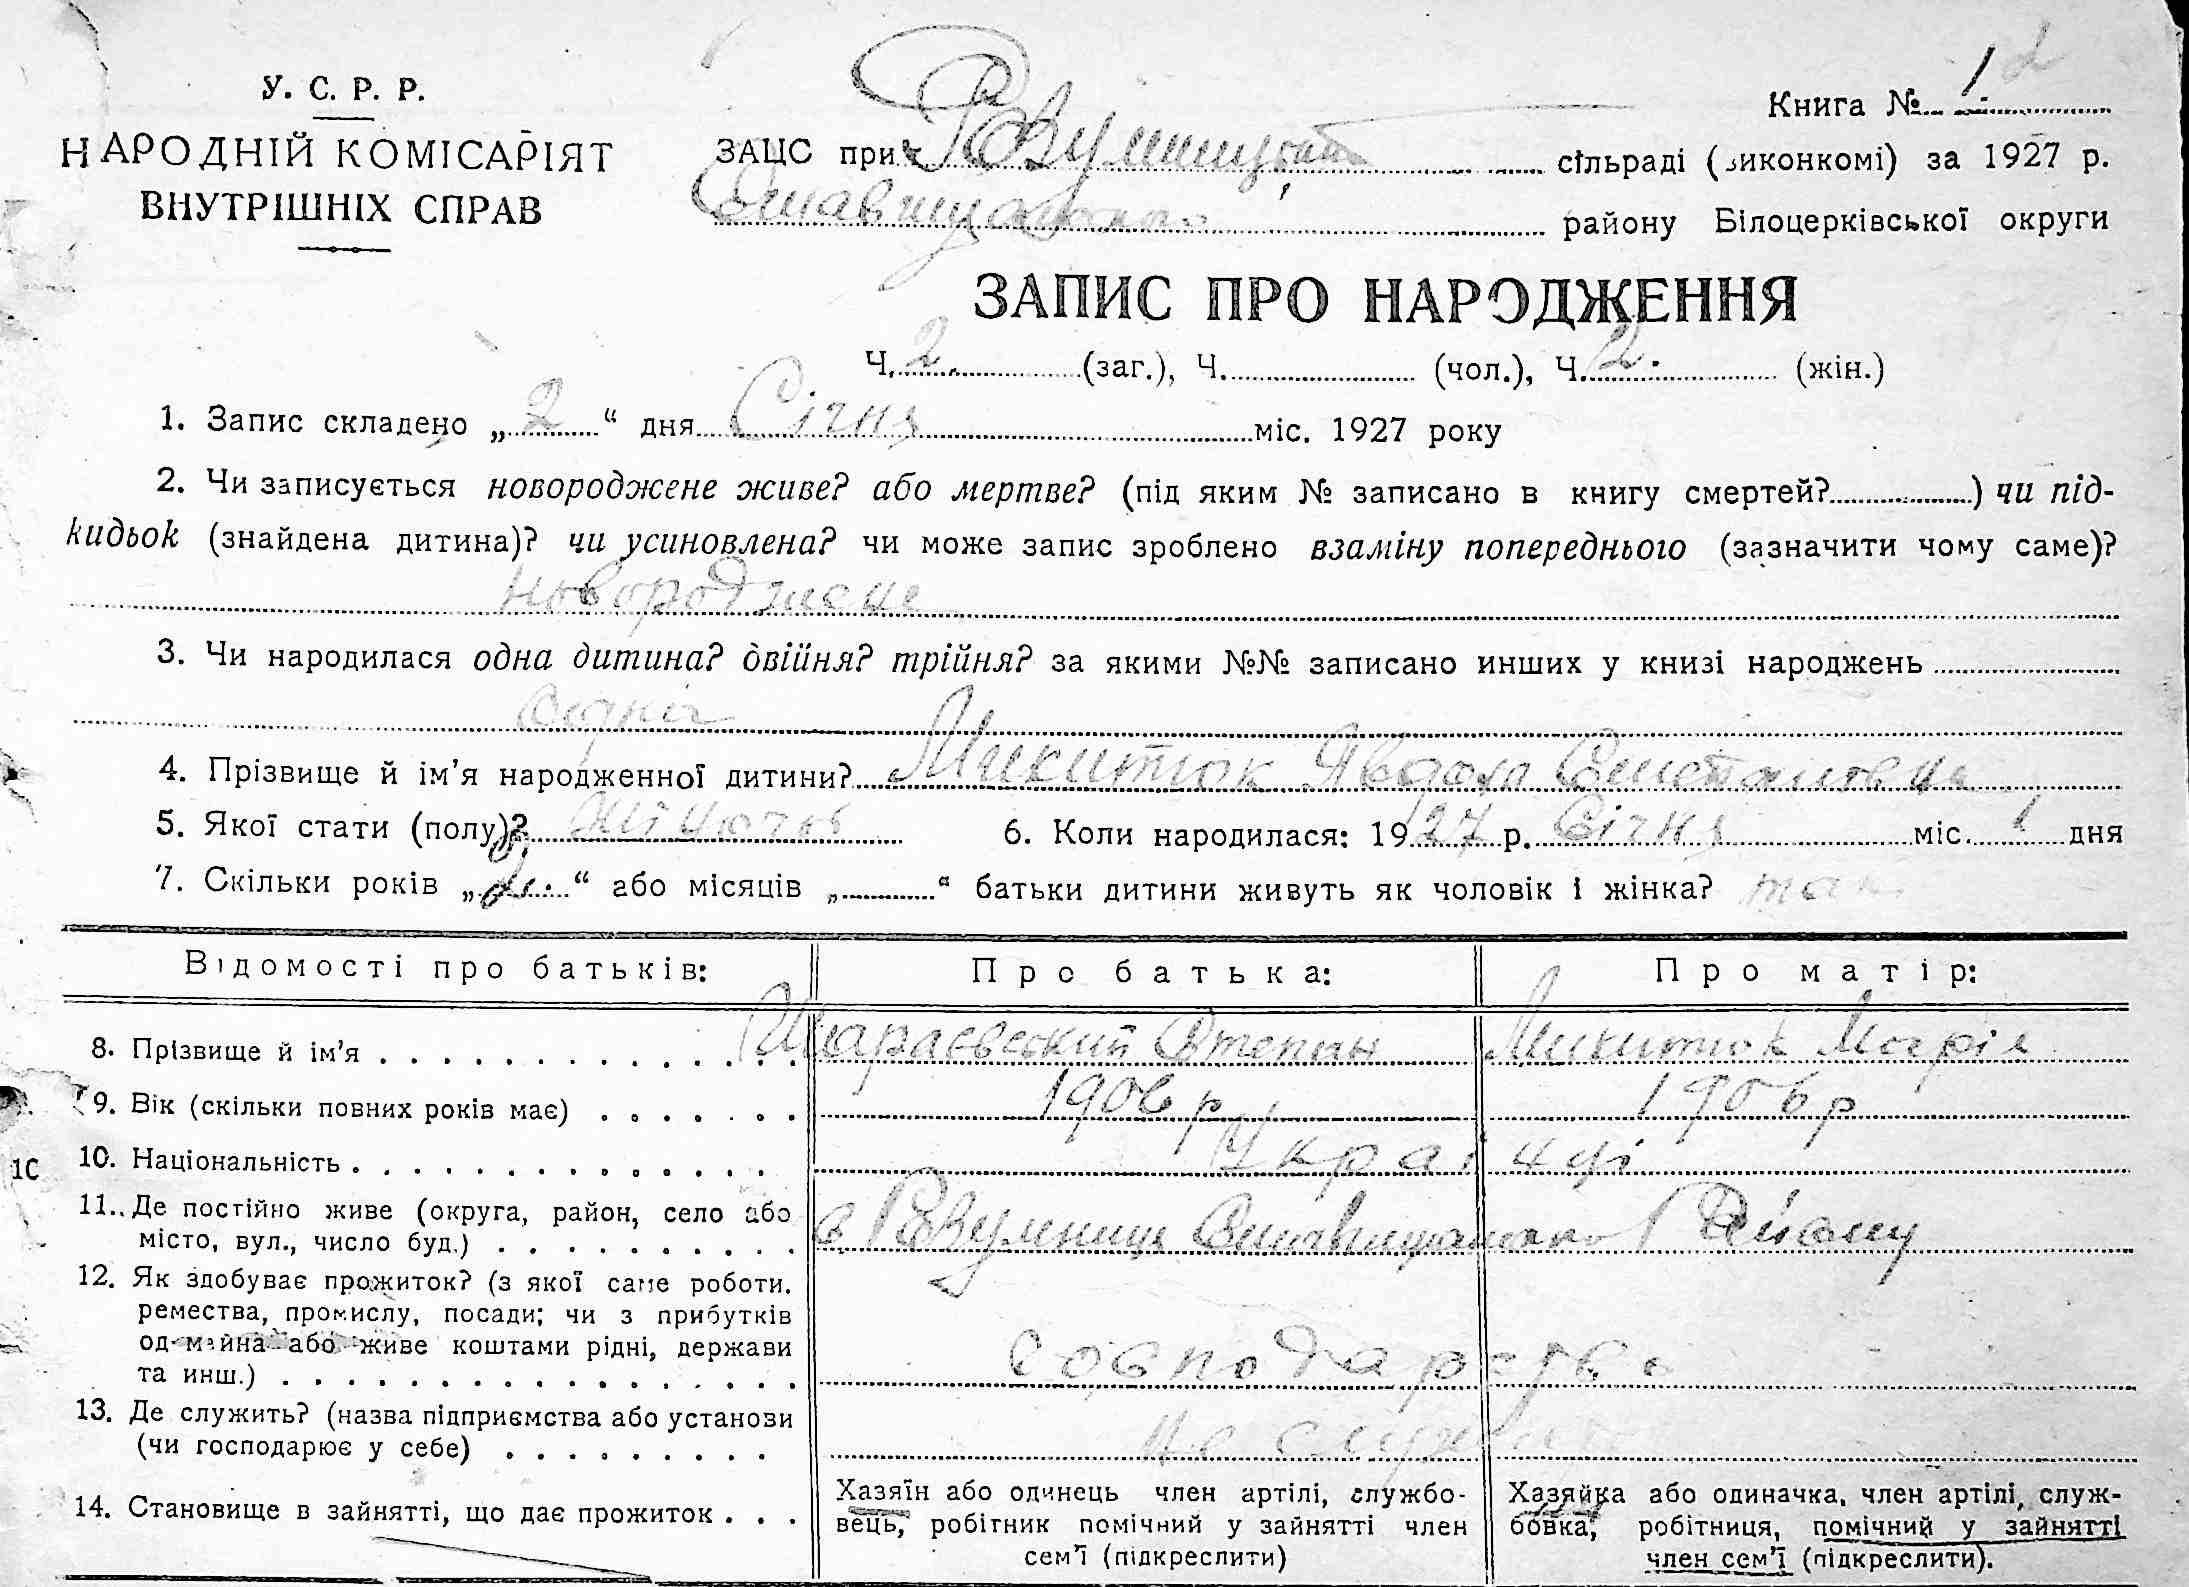 У. С. Р. Р.
НАРОДНІЙ КОМІСАРІЯТ
ВНУТРІШНІХ СПРАВ
Книга № 1
ЗАЦС при Розумницькій сільраді (виконкомі) за 1927 р.
Ставищанського району Білоцерківської округи
ЗАПИС ПРО НАРОДЖЕННЯ
Ч. 2. (заг.), Ч. (чол.), Ч. 2. (жін.)
1. Запис складено „ 2 “ дня Січня міс. 1927 року
2. Чи записується новороджене живе? або мертве? (під яким № записано в книгу смертей? ) чи під-
кидьок (знайдена дитина)? чи усиновлена? чи може запис зроблено взаміну попереднього (зазначити чому саме)?
новороджене
3. Чи народилася одна дитина? двійня? трійня? за якими №№ записано инших у книзі народжень
одна
4. Прізвище й ім’я народженної дитини? Микитюк Явдоха
5. Якої стати (полу)? жіночої 6. Коли народилася: 1927 р. Січня міс. 1 дня
7. Скільки років „ 2. “ або місяців „ “ батьки дитини живуть як чоловік і жінка? так
Відомості про батьків: Про батька: Про матір:
8. Прізвище й ім’я Шараєвский Степан Микитюк Марія
9. Вік (скільки повних років має) 1906 р 1906 р
10. Національність Українці
11. Де постійно живе (округа, район, село або
місто, вул., число буд.) с Розумниця Ставищанського Району
12. Як здобуває прожиток? (з якої саме роботи.
ремества, промислу, посади; чи з прибутків
од майна або живе коштами рідні, держави
та инш.) Господарство
13. Де служить? (назва підприємства або установи
(чи господарює у себе) не служат
14. Становище в зайнятті, що дає прожиток
Хазяїн або одинець член артілі, службо-
вець, робітник помічний у зайнятті член
сем’ї (підкреслити)
Хазяйка або одиначка, член артілі, служ-
бовка, робітниця, помічний у зайнятті
член сем’ї (підкреслити).